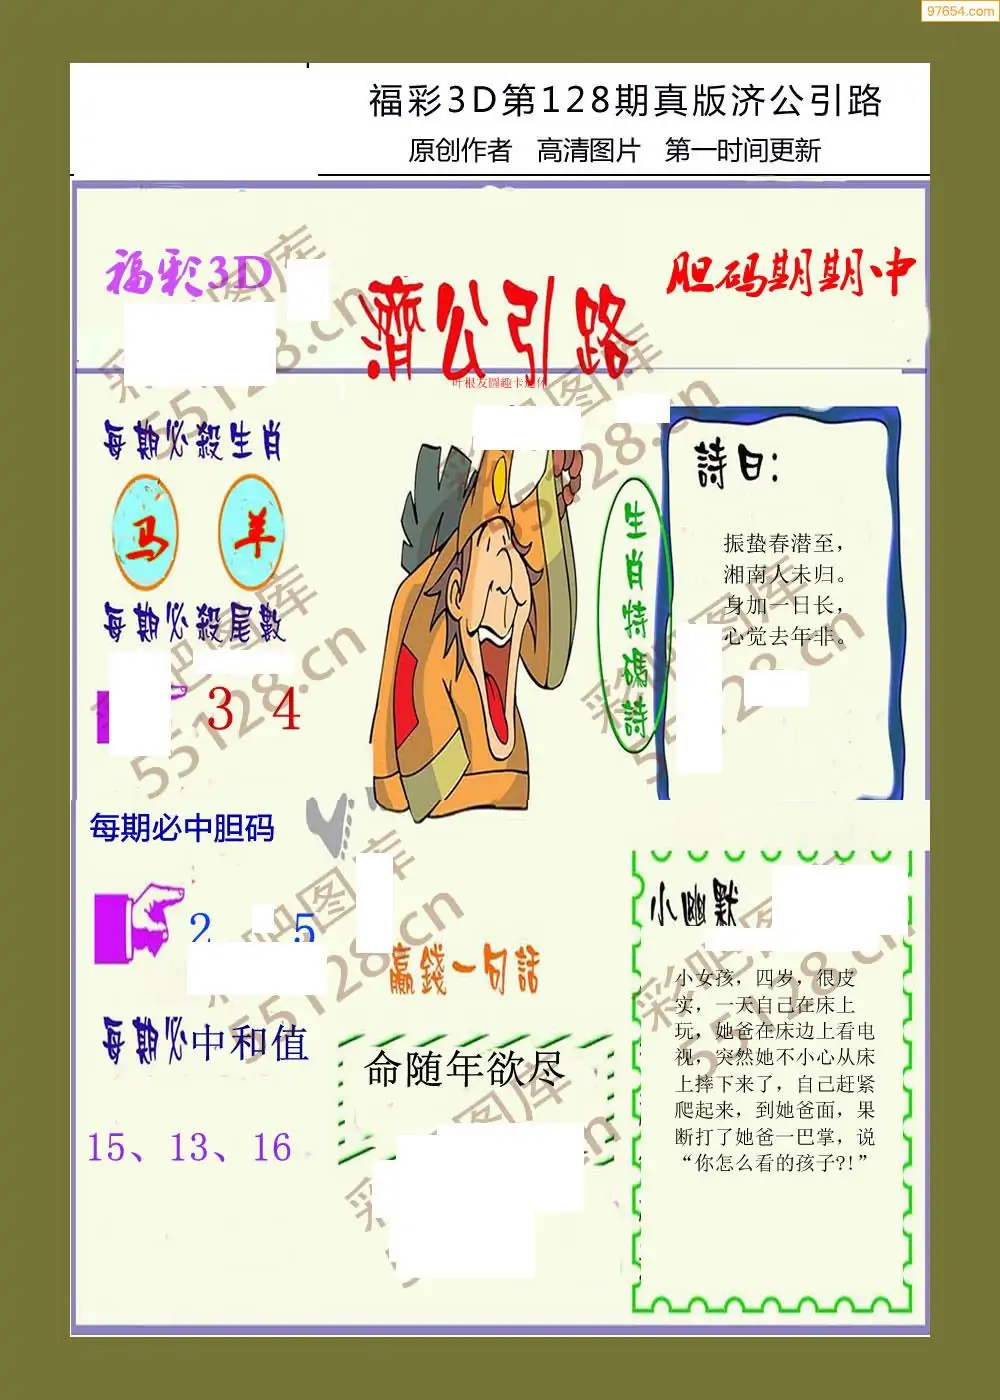 97654.com
福彩3D第128期真版济公引路
原创作者 高清图片 第一时间更新
福彩3D
濟公引路
胆码期期中
每期必殺生肖
马 羊
每期必殺尾數
3 4
生肖特碼詩
詩曰:
振蛰春潜至，
湘南人未归。
身加一日长，
心觉去年非。
每期必中胆码
2 5
每期必中和值
15、13、16
赢錢一句話
命随年欲尽
小幽默
小女孩，四岁，很皮
实，一天自己在床上
玩，她爸在床边上看电
视，突然她不小心从床
上摔下来了，自己赶紧
爬起来，到她爸面，果
断打了她爸一巴掌，说
“你怎么看的孩子?!”
彩吧图库
55128.cn
彩吧图库
55128.cn
彩吧图库
55128.cn
彩吧图库
55128.cn
彩吧图库
55128.cn